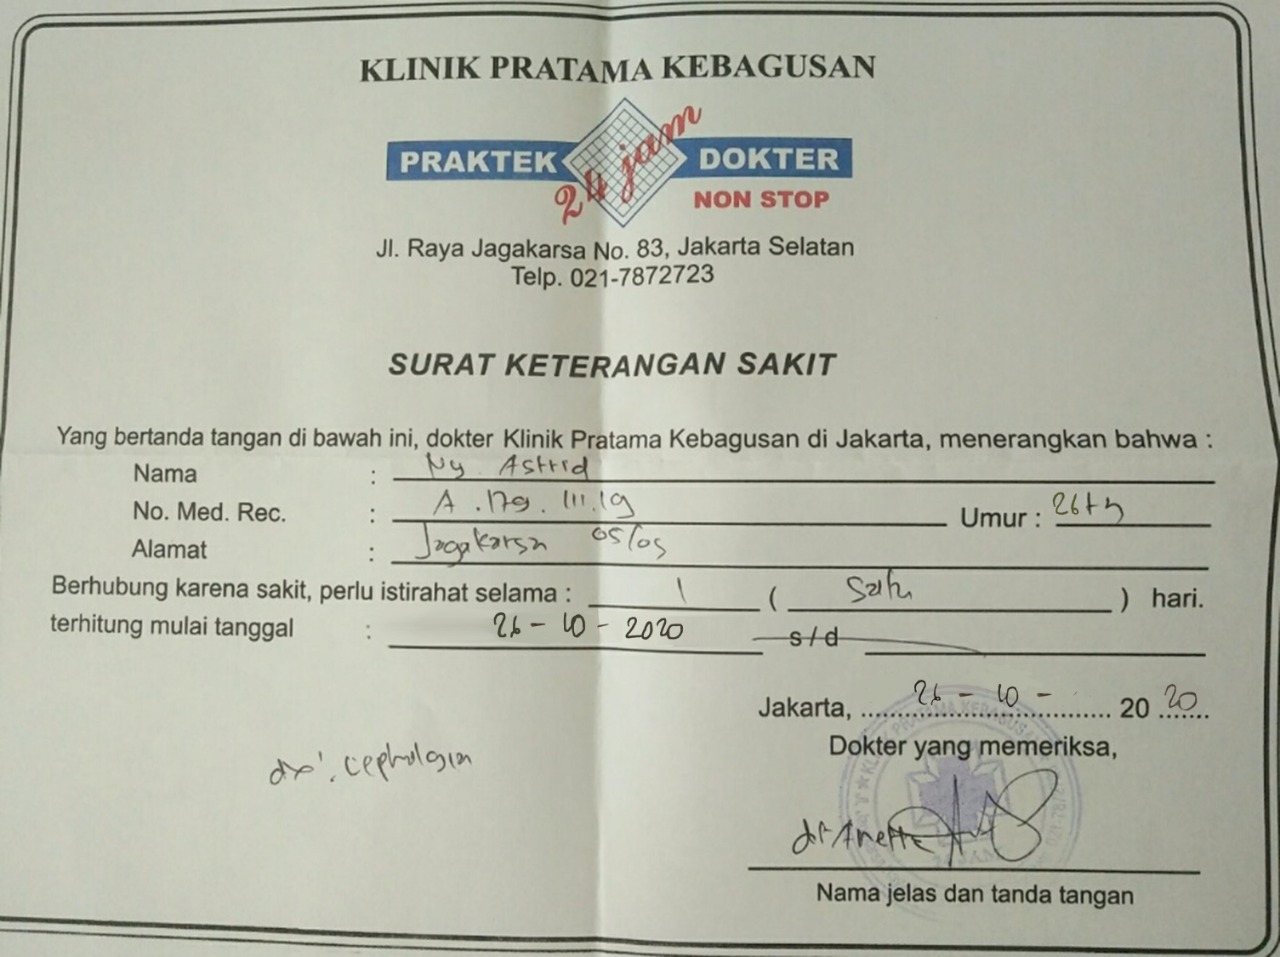 KLINIK PRATAMA KEBAGUSAN
PRAKTEK 24 jam DOKTER
NON STOP
Jl. Raya Jagakarsa No. 83, Jakarta Selatan
Telp. 021-7872723
SURAT KETERANGAN SAKIT
Yang bertanda tangan di bawah ini, dokter Klinik Pratama Kebagusan di Jakarta, menerangkan bahwa :
Nama : Ny Astrid
No. Med. Rec. : A .179. III.19 Umur : 26 th
Alamat : Jagakarsa 05/05
Berhubung karena sakit, perlu istirahat selama : 1 ( Satu ) hari.
terhitung mulai tanggal : 26 - 10 - 2020 s/d
Jakarta, 26 - 10 - 20 20
Dokter yang memeriksa,
dx'. cephalgia
dr Anette
Nama jelas dan tanda tangan